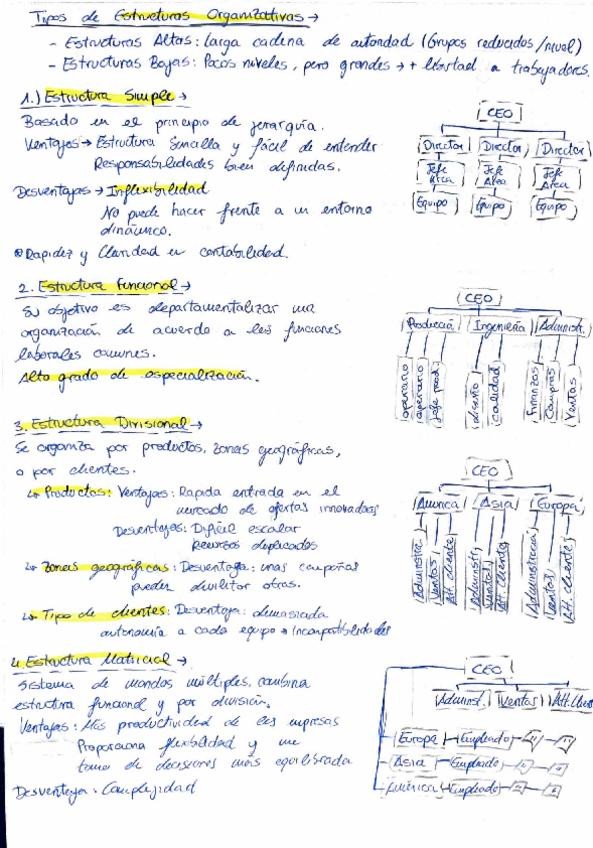 Tipos de Estructuras Organizativas →
- Estructuras Altas: larga cadena de autoridad (Grupos reducidos/nivel)
- Estructuras Bajas: Pocos niveles, pero grandes → + libertad a trabajadores.
1.) Estructura Simple →
Basado en el principio de jerarquía.
Ventajas → Estructura Sencilla y fácil de entender
Responsabilidades bien definidas.
Desventajas → Inflexibilidad
No puede hacer frente a un entorno
dinámico.
Rapidez y Claridad en contabilidad.
CEO
Director Director Director
Jefe Área Jefe Área Jefe Área
Equipo Equipo Equipo
2. Estructura Funcional →
Su objetivo es departamentalizar una
organización de acuerdo a las funciones
laborales comunes.
Alto grado de especialización.
CEO
Producció Ingeniería Administ.
operario operario Jefe prod. diseño calidad Finanzas Compras Ventas
3. Estructura Divisional →
Se organiza por productos, zonas geográficas,
o por clientes.
↳ Productos: Ventajas: Rapida entrada en el
mercado de ofertas innovadoras
Desventajas: Difícil escalar
Recursos duplicados
↳ Zonas geográficas: Desventaja: unas campañas
pueden debilitar otras.
↳ Tipo de clientes: Desventaja: demasiada
autonomía a cada equipo → incompatibilidades
CEO
América Asia Europa
Administra. Ventas Att. cliente Administ. Ventas Att. Cliente Administració Ventas Att. cliente
4. Estructura Matricial →
Sistema de mandos múltiples, combina
estructura funcional y por división.
Ventajas: Más productividad de las empresas
Proporciona flexibilidad y una
toma de decisiones más equilibrada
Desventaja: Complejidad
CEO
Administ. Ventas Att. Clien
Europa Empleado
Asia Empleado
América Empleado